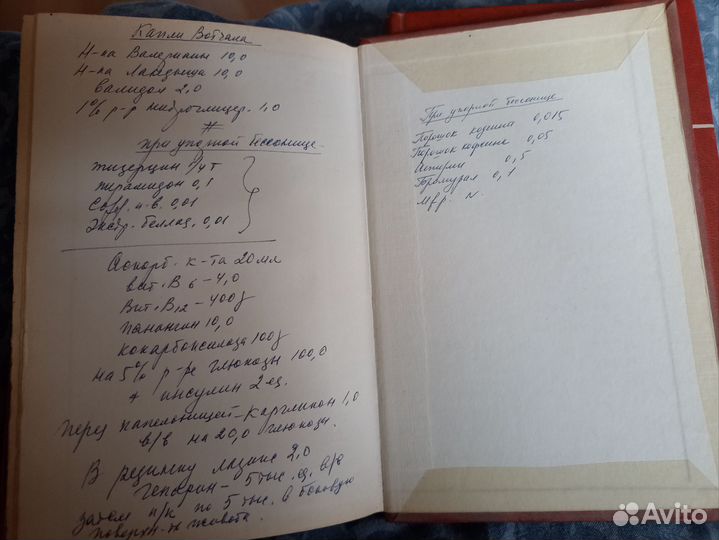 Капли Вотчала
Н-ка Валерианы 10,0
Н-ка Ландыша 10,0
Валидол 2,0
1% р-р нитроглицер. 1,0
#
при упорной бессонице
тизерцин 1/4 т
пирамидон 0,1
Coff. n-b. 0,01
Экстр. беллад. 0,01
Аскорб. к-та 20 мл
вит. В6 – 4,0
Вит. В12 – 400γ
панангин 10,0
кокарбоксилаза 100γ
на 5% р-ре глюкозы 100,0
+ инсулин 2 ед.
перед капельницей – Каргликон 1,0
в/в на 20,0 глюкозы.
В резинку лазикс 2,0
гепарин – 5 тыс. ед. в/в
затем п/к по 5 тыс. в боковую
поверх-ть живота.
При упорной бессонице
Порошок кодеина 0,015
Порошок кофеина 0,05
Аспирин 0,5
Бромурал 0,1
M f p. N.
Avito